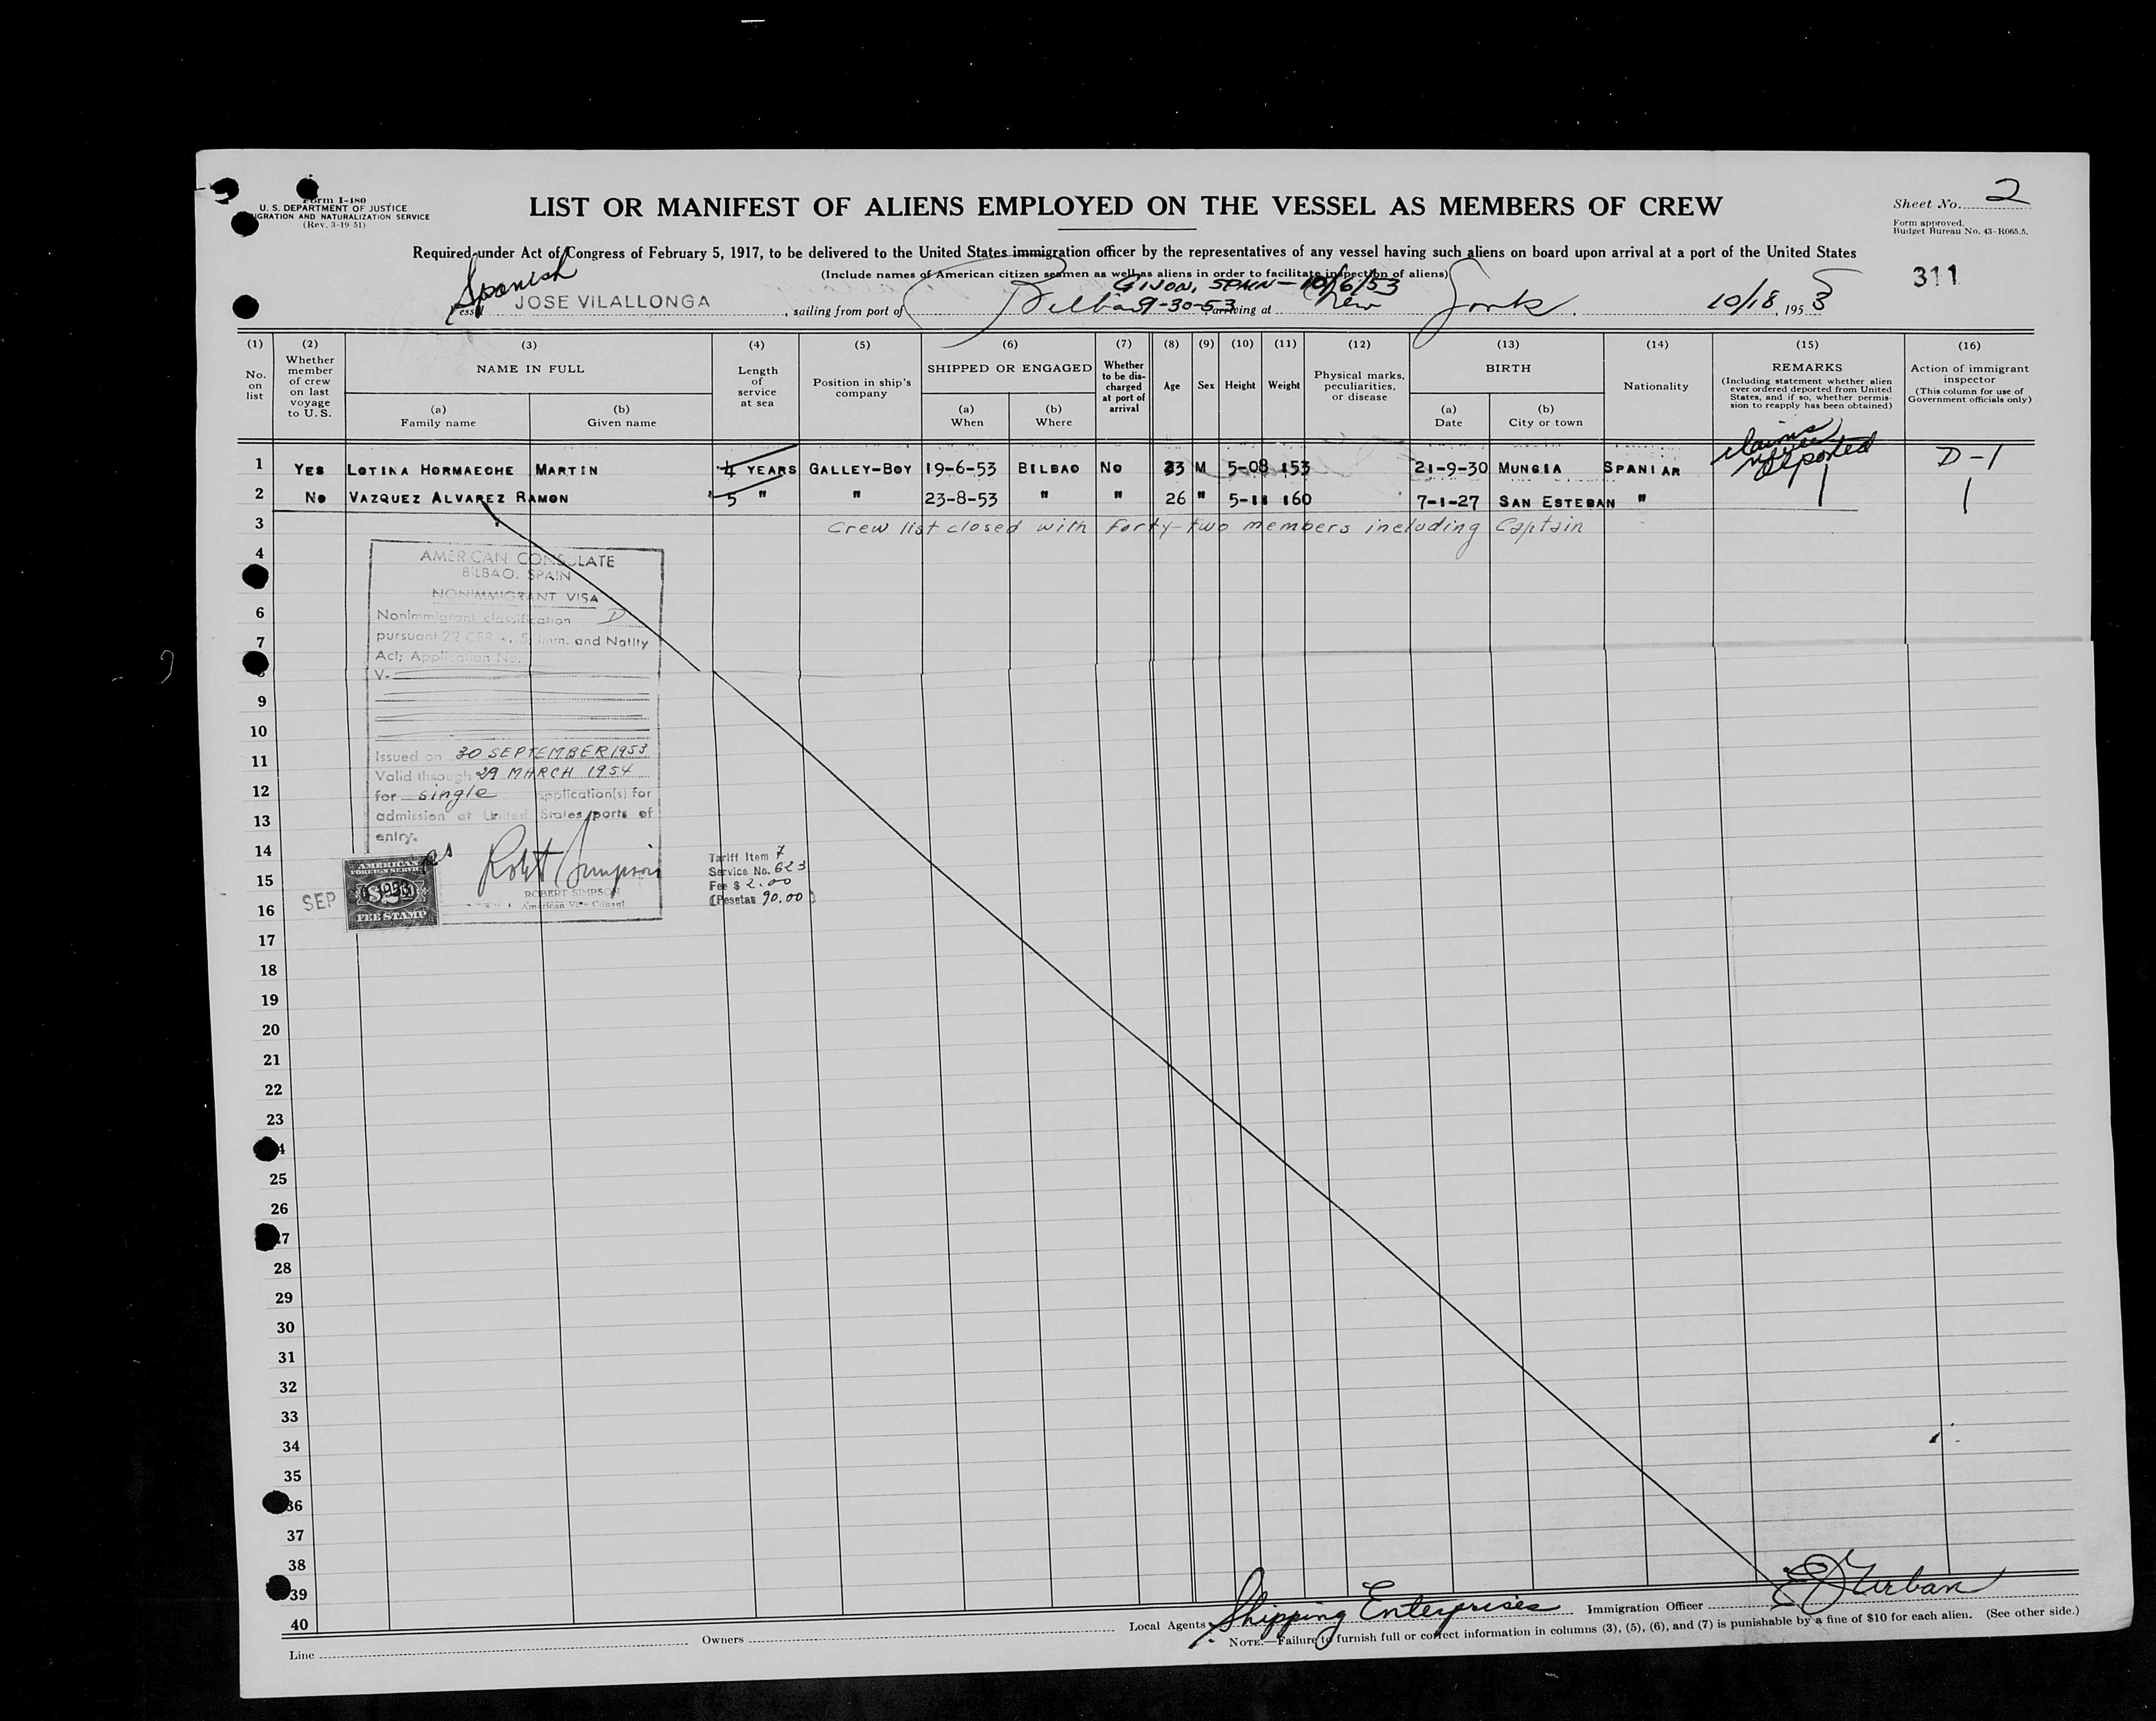 Form I-480
U. S. DEPARTMENT OF JUSTICE
IGRATION AND NATURALIZATION SERVICE
(Rev. 3-19 51)
LIST OR MANIFEST OF ALIENS EMPLOYED ON THE VESSEL AS MEMBERS OF CREW
Sheet No. 2
Form approved.
Budget Bureau No. 43-R065.5.
Required under Act of Congress of February 5, 1917, to be delivered to the United States immigration officer by the representatives of any vessel having such aliens on board upon arrival at a port of the United States
(Include names of American citizen seamen as well as aliens in order to facilitate inspection of aliens)
311
Spanish
GIJON, SPAIN - 10/6/53
JOSE VILALLONGA, sailing from port of Bilbao 9-30-53 arriving at New York. 10/18, 1953
(1) (2) (3) (4) (5) (6) (7) (8) (9) (10) (11) (12) (13) (14) (15) (16)
No. on list
Whether member of crew on last voyage to U. S.
NAME IN FULL
(a) Family name
(b) Given name
Length of service at sea
Position in ship's company
SHIPPED OR ENGAGED
(a) When
(b) Where
Whether to be discharged at port of arrival
Age
Sex
Height
Weight
Physical marks, peculiarities, or disease
BIRTH
(a) Date
(b) City or town
Nationality
REMARKS
(Including statement whether alien ever ordered deported from United States, and if so, whether permission to reapply has been obtained)
Action of immigrant inspector
(This column for use of Government officials only)
claims never deported
1 YES LOTINA HORMAECHE MARTIN 4 YEARS GALLEY-BOY 19-6-53 BILBAO NO 23 M 5-08 153 21-9-30 MUNGIA SPANIAR D-1
2 NO VAZQUEZ ALVAREZ RAMON 5 " " 23-8-53 " " 26 " 5-11 160 7-1-27 SAN ESTEBAN "
3 Crew list closed with forty-two members including Captain
4
6
7
9
10
11
12
13
14
15
16
17
18
19
20
21
22
23
4
25
26
27
28
29
30
31
32
33
34
35
36
37
38
39
40
AMERICAN CONSULATE
BILBAO, SPAIN
NONIMMIGRANT VISA
Nonimmigrant classification D
pursuant 22 CFR Imm. and Natlty
Act; Application No.
V-
Issued on 30 SEPTEMBER 1953
Valid through 29 MARCH 1954
for single application(s) for
admission at United States ports of
entry.
Robt Simpson
ROBERT SIMPSON
American Vice Consul
SEP
1953
AMERICAN
FOREIGN SERVICE
$2
FEE STAMP
Tariff Item 7
Service No. 623
Fee $ 2.00
(Pesetas 90.00)
Line
Owners
Local Agents Shipping Enterprises
Immigration Officer E J Urban
NOTE.—Failure to furnish full or correct information in columns (3), (5), (6), and (7) is punishable by a fine of $10 for each alien. (See other side.)